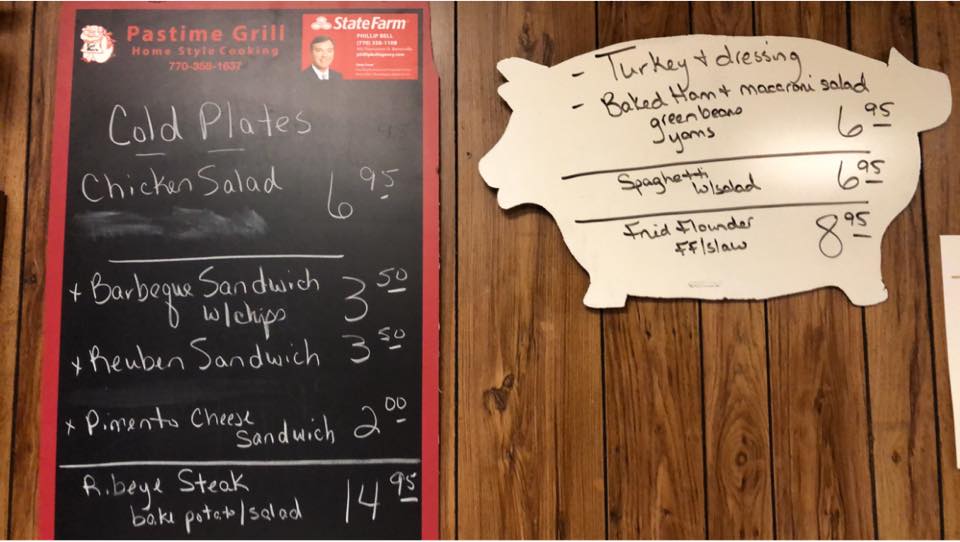 Pastime Grill
Home Style Cooking
770-358-1637
StateFarm
PHILLIP BELL
(770) 358-1188
Cold Plates
Chicken Salad 6 95
x Barbeque Sandwich 3 50
w/chips
x Reuben Sandwich 3 50
x Pimento Cheese
Sandwich 2 00
Ribeye Steak 14 95
bake potato/salad
- Turkey + dressing
- Baked Ham + macaroni salad
green beans 6 95
yams
Spaghetti 6 95
w/salad
Fried Flounder 8 95
FF/slaw